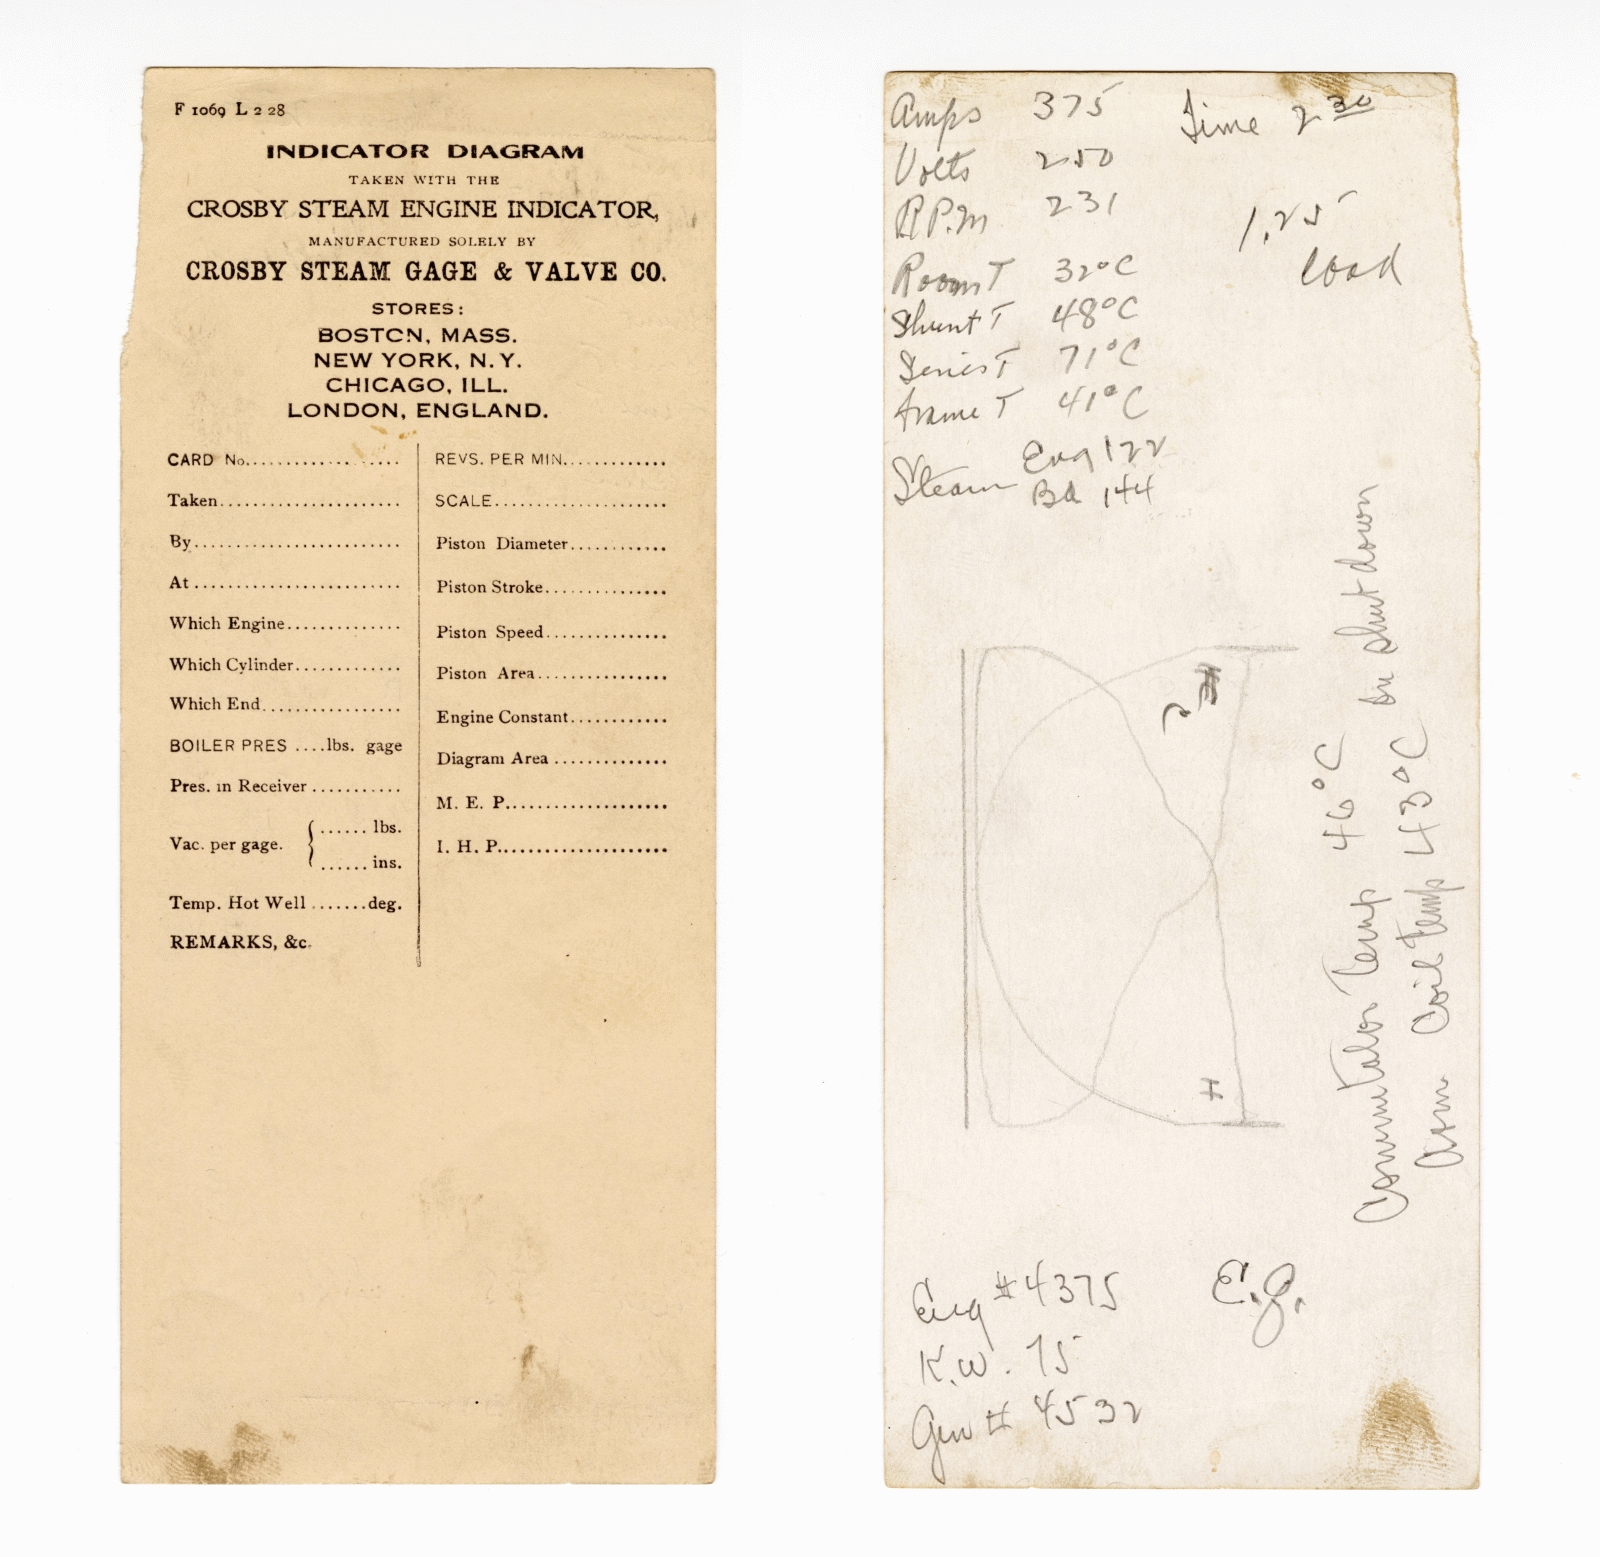 F 1069 L 2 28
INDICATOR DIAGRAM
TAKEN WITH THE
CROSBY STEAM ENGINE INDICATOR,
MANUFACTURED SOLELY BY
CROSBY STEAM GAGE & VALVE CO.
STORES:
BOSTON, MASS.
NEW YORK, N. Y.
CHICAGO, ILL.
LONDON, ENGLAND.
CARD No..................
Taken......................
By.........................
At.........................
Which Engine..............
Which Cylinder.............
Which End.................
BOILER PRES ....lbs. gage
Pres. in Receiver ...........
Vac. per gage. { ...... lbs.
...... ins.
Temp. Hot Well .......deg.
REMARKS, &c.
REVS. PER MIN.............
SCALE.....................
Piston Diameter............
Piston Stroke...............
Piston Speed...............
Piston Area................
Engine Constant............
Diagram Area ..............
M. E. P....................
I. H. P.....................
Amps 375 Time 2 30
Volts 250
R.P.M 231
1.25
load
Room T 32°C
Shunt T 48°C
Series T 71°C
Frame T 41°C
Steam Eng 122
Bd 144
H
Commutator Temp 46°C
Arm Coil Temp 43°C on shut down
Eng #4375 E.J.
K.W. 75
Gen # 4532